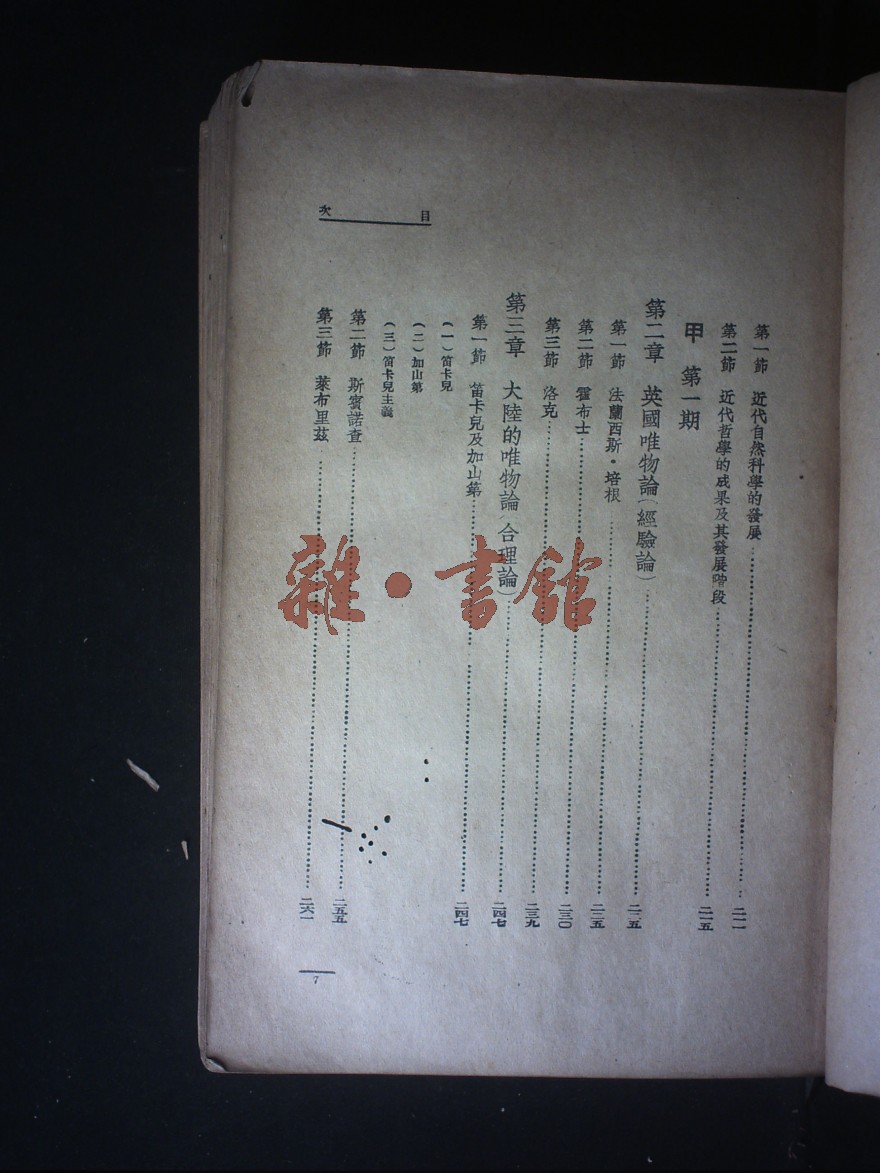 目次
第一節 近代自然科學的發展……二一一
第二節 近代哲學的成果及其發展階段……二一五
甲 第一期
第二章 英國唯物論（經驗論）……二二五
第一節 法蘭西斯・培根……二二五
第二節 霍布士……二三〇
第三節 洛克……二三九
第三章 大陸的唯物論（合理論）……二四七
第一節 笛卡兒及加山第……二四七
（一）笛卡兒
（二）加山第
（三）笛卡兒主義
第二節 斯賓諾查……二五五
第三節 萊布里茲……二六一
7
雜・書館